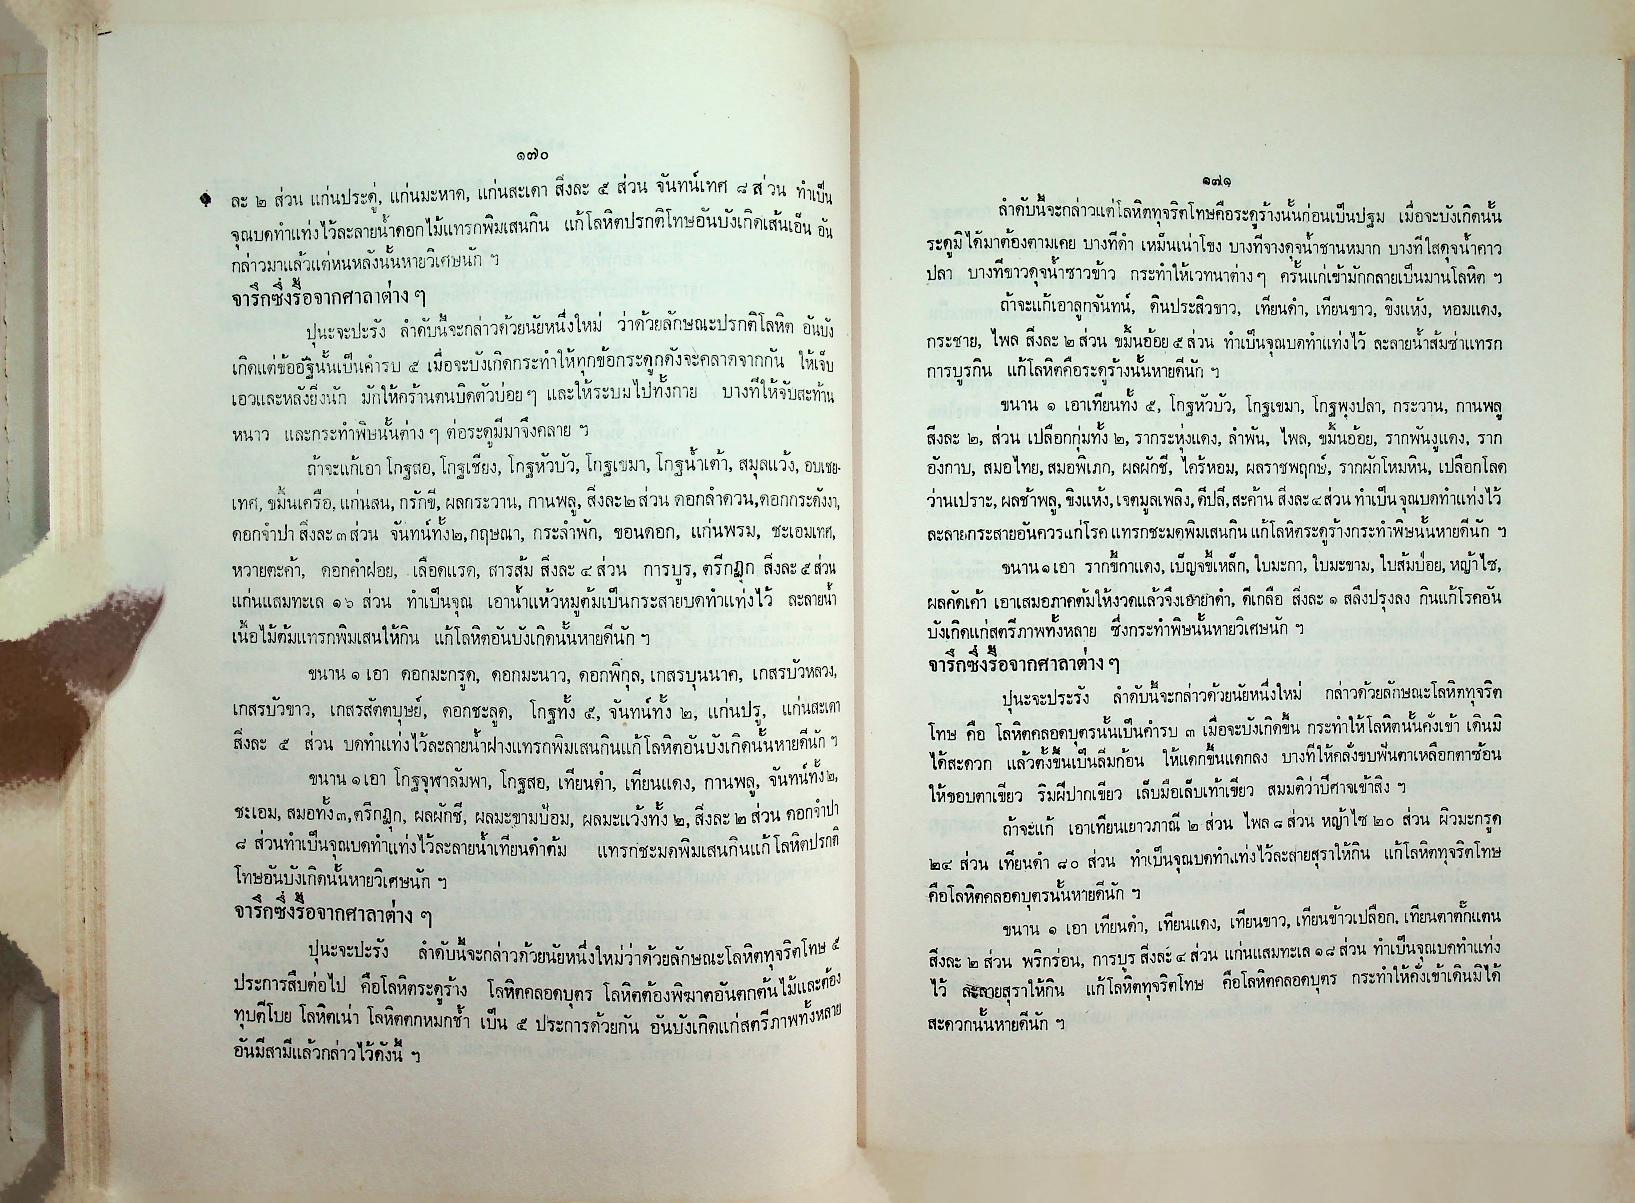 ๑๗๐
ละ ๒ ส่วน แก่นประดู่, แก่นมะหาด, แก่นสะเดา สิ่งละ ๕ ส่วน จันทน์เทศ ๘ ส่วน ทำเป็น
จุณบดทำแท่งไว้ละลายน้ำดอกไม้แทรกพิมเสนกิน แก้โลหิตปรกติโทษอันบังเกิดเส้นเอ็น อัน
กล่าวมาแล้วแต่หนหลังนั้นหายวิเศษนัก ฯ
จารึกซึ่งรื้อจากศาลาต่าง ๆ
ปุนะจะปะรัง ลำดับนี้จะกล่าวด้วยนัยหนึ่งใหม่ ว่าด้วยลักษณะปรกติโลหิต อันบัง
เกิดแต่ข้ออัฐินั้นเป็นคำรบ ๕ เมื่อจะบังเกิดกระทำให้ทุกข้อกระดูกดังจะคลาดจากกัน ให้เจ็บ
เอวและหลังยิ่งนัก มักให้คร้านตนบิดตัวบ่อยๆ และให้ระบมไปทั้งกาย บางทีให้จับสะท้าน
หนาว และกระทำพิษนั้นต่าง ๆ ต่อระดูมีมาจึงคลาย ฯ
ถ้าจะแก้เอา โกฐสอ, โกฐเชียง, โกฐหัวบัว, โกฐเขมา, โกฐน้ำเต้า, สมุลแว้ง, อบเชย-
เทศ, ขมิ้นเครือ, แก่นสน, กรักขี, ผลกระวาน, กานพลู, สิ่งละ๒ส่วน ดอกลำดวน,ดอกกระดังงา,
ดอกจำปา สิ่งละ๓ส่วน จันทน์ทั้ง๒,กฤษณา, กระลำพัก, ขอนดอก, แก่นพรม, ชะเอมเทศ,
หวายตะค้า, ดอกคำฝอย, เลือดแรด, สารส้ม สิ่งละ ๔ ส่วน การบูร, ตรีกฏุก สิ่งละ ๕ ส่วน
แก่นแสมทะเล ๑๖ ส่วน ทำเป็นจุณ เอาน้ำแห้วหมูต้มเป็นกระสายบดทำแท่งไว้ ละลายน้ำ
เนื้อไม้ต้มแทรกพิมเสนให้กิน แก้โลหิตอันบังเกิดนั้นหายดีนัก ฯ
ขนาน ๑ เอา ดอกมะกรูด, ดอกมะนาว, ดอกพิกุล, เกสรบุนนาค, เกสรบัวหลวง,
เกสรบัวขาว, เกสรสัตตบุษย์, ดอกชะลูด, โกฐทั้ง ๕, จันทน์ทั้ง ๒, แก่นปรู, แก่นสะเดา
สิ่งละ ๕ ส่วน บดทำแท่งไว้ละลายน้ำฝางแทรกพิมเสนกินแก้โลหิตอันบังเกิดนั้นหายดีนัก ฯ
ขนาน ๑ เอา โกฐจุฬาลัมพา, โกฐสอ, เทียนดำ, เทียนแดง, กานพลู, จันทน์ทั้ง๒,
ชะเอม, สมอทั้ง๓,ตรีกฏุก, ผลผักชี, ผลมะขามป้อม, ผลมะแว้งทั้ง ๒, สิ่งละ ๒ ส่วน ดอกจำปา
๘ ส่วนทำเป็นจุณบดทำแท่งไว้ละลายน้ำเทียนดำต้ม แทรกชะมดพิมเสนกินแก้โลหิตปรกติ
โทษอันบังเกิดนั้นหายวิเศษนัก ฯ
จารึกซึ่งรื้อจากศาลาต่าง ๆ
ปุนะจะปะรัง ลำดับนี้จะกล่าวด้วยนัยหนึ่งใหม่ว่าด้วยลักษณะโลหิตทุจริตโทษ ๕
ประการสืบต่อไป คือโลหิตระดูร้าง โลหิตคลอดบุตร โลหิตต้องพิฆาตอันตกต้นไม้และต้อง
ทุบตีโบย โลหิตเน่า โลหิตตกหมกช้ำ เป็น ๕ ประการด้วยกัน อันบังเกิดแก่สตรีภาพทั้งหลาย
อันมีสามีแล้วกล่าวไว้ดังนี้ ฯ
๑๗๑
ลำดับนี้จะกล่าวแต่โลหิตทุจริตโทษคือระดูร้างนั้นก่อนเป็นปฐม เมื่อจะบังเกิดนั้น
ระดูมิได้มาต้องตามเคย บางทีดำ เหม็นเน่าโขง บางทีจางดุจน้ำชานหมาก บางทีใสดุจน้ำคาว
ปลา บางทีขาวดุจน้ำซาวข้าว กระทำให้เวทนาต่างๆ ครั้นแก่เข้ามักกลายเป็นมานโลหิต ฯ
ถ้าจะแก้เอาลูกจันทน์, ดินประสิวขาว, เทียนดำ, เทียนขาว, ขิงแห้ง, หอมแดง,
กระชาย, ไพล สิ่งละ ๒ ส่วน ขมิ้นอ้อย ๕ ส่วน ทำเป็นจุณบดทำแท่งไว้ ละลายน้ำส้มซ่าแทรก
การบูรกิน แก้โลหิตคือระดูร้างนั้นหายดีนัก ฯ
ขนาน ๑ เอาเทียนทั้ง ๕, โกฐหัวบัว, โกฐเขมา, โกฐพุงปลา, กระวาน, กานพลู
สิ่งละ ๒, ส่วน เปลือกกุ่มทั้ง ๒, รากระหุ่งแดง, ลำพัน, ไพล, ขมิ้นอ้อย, รากพันงูแดง, ราก
อังกาบ, สมอไทย, สมอพิเภก, ผลผักชี, ไคร้หอม, ผลราชพฤกษ์, รากผักโหมหิน, เปลือกโลด
ว่านเปราะ, ผลช้าพลู, ขิงแห้ง, เจตมูลเพลิง, ดีปลี, สะค้าน สิ่งละ๔ส่วน ทำเป็นจุณบดทำแท่งไว้
ละลายกระสายอันควรแก่โรค แทรกชะมดพิมเสนกิน แก้โลหิตระดูร้างกระทำพิษนั้นหายดีนัก ฯ
ขนาน๑เอา รากขี้กาแดง, เบ็ญจขี้เหล็ก, ใบมะกา, ใบมะขาม, ใบส้มป่อย, หญ้าไซ,
ผลคัดเค้า เอาเสมอภาคต้มให้งวดแล้วจึงเอายาดำ, ดีเกลือ สิ่งละ ๑ สลึงปรุงลง กินแก้โรคอัน
บังเกิดแก่สตรีภาพทั้งหลาย ซึ่งกระทำพิษนั้นหายวิเศษนัก ฯ
จารึกซึ่งรื้อจากศาลาต่าง ๆ
ปุนะจะปะรัง ลำดับนี้จะกล่าวด้วยนัยหนึ่งใหม่ กล่าวด้วยลักษณะโลหิตทุจริต
โทษ คือ โลหิตคลอดบุตรนั้นเป็นคำรบ ๓ เมื่อจะบังเกิดขึ้น กระทำให้โลหิตนั้นคั่งเข้า เดินมิ
ได้สะดวก แล้วตั้งขึ้นเป็นลิ่มก้อน ให้แดกขึ้นแดกลง บางทีให้คลั่งขบฟันตาเหลือกตาซ้อน
ให้ขอบตาเขียว ริมฝีปากเขียว เล็บมือเล็บเท้าเขียว สมมติว่าปีศาจเข้าสิง ฯ
ถ้าจะแก้ เอาเทียนเยาวภาณี ๒ ส่วน ไพล ๘ ส่วน หญ้าไซ ๒๐ ส่วน ผิวมะกรูด
๒๔ ส่วน เทียนดำ ๘๐ ส่วน ทำเป็นจุณบดทำแท่งไว้ละลายสุราให้กิน แก้โลหิตทุจริตโทษ
คือโลหิตคลอดบุตรนั้นหายดีนัก ฯ
ขนาน ๑ เอา เทียนดำ, เทียนแดง, เทียนขาว, เทียนข้าวเปลือก, เทียนตาตั๊กแตน
สิ่งละ ๒ ส่วน พริกร่อน, การบูร สิ่งละ ๔ ส่วน แก่นแสมทะเล ๑๘ ส่วน ทำเป็นจุณบดทำแท่ง
ไว้ ละลายสุราให้กิน แก้โลหิตทุจริตโทษ คือโลหิตคลอดบุตร กระทำให้คั่งเข้าเดินมิได้
สะดวกนั้นหายดีนัก ฯ